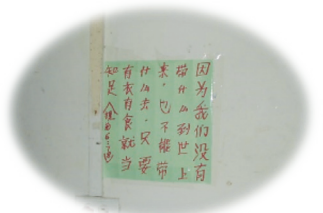 因为我们没有
带什么到世上
来，也不能带
什么去．只要
有衣有食就当
知足